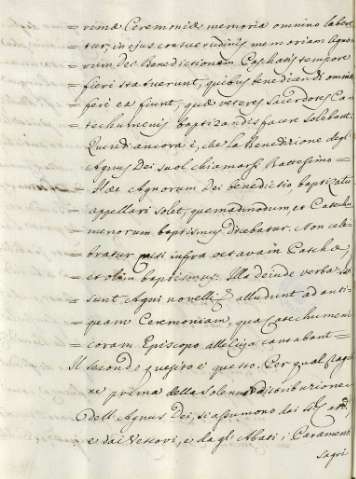 = rimæ Ceremoniæ memoria omnino labe=
= tur, in ejus consuetudinis memoriam Agno=
= rum Dei Benedictionem Paschatis tempore
= fieri statuerunt, quibus benedicendis omnia
= feri ea fiunt, quæ veteres Sacerdotes Ca=
= techumenis baptizandis facere solebant.
Quindi ancora è, che la Benedizione degl'
Agnus Dei suol chiamarsi Battesimo =
= Hæc Agnorum Dei benedictio, baptizatio
= appellari solet, quemadmodum, et Catechu=
= menorum baptismus dicebatur. Non cele=
= bratur nisi infra octavam Paschæ,
= et olim baptismus. Illa deinde verba Isti
= sunt Agni novelli alludunt ad anti=
= quam Ceremoniam, qua Catechumeni
= coram Episcopo alleluja cantabant =
Il secondo quesito è questo. Per qual ragio
ne prima della Solenne distribuzione
dell' Agnus Dei, si assumono dai
e dai Vescovi, e dagl' Abati, i Paramenti
sagri